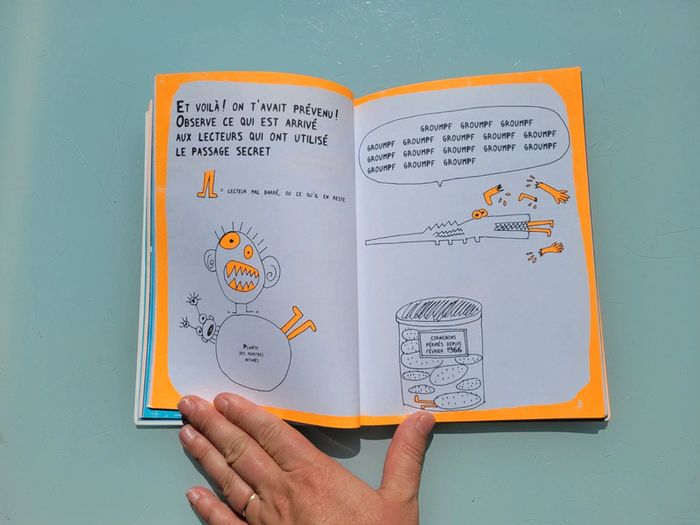 ET VOILÀ! ON T'AVAIT PRÉVENU!
OBSERVE CE QUI EST ARRIVÉ
AUX LECTEURS QUI ONT UTILISÉ
LE PASSAGE SECRET
= LECTEUR MAL BARRÉ, OU CE QU'IL EN RESTE
PLANÈTE
DES MONSTRES
AFFAMÉS
GROUMPF GROUMPF GROUMPF
GROUMPF GROUMPF GROUMPF GROUMPF GROUMPF
GROUMPF GROUMPF GROUMPF GROUMPF GROUMPF
GROUMPF GROUMPF GROUMPF
CORNICHONS
PÉRIMÉS DEPUIS
FÉVRIER 1966